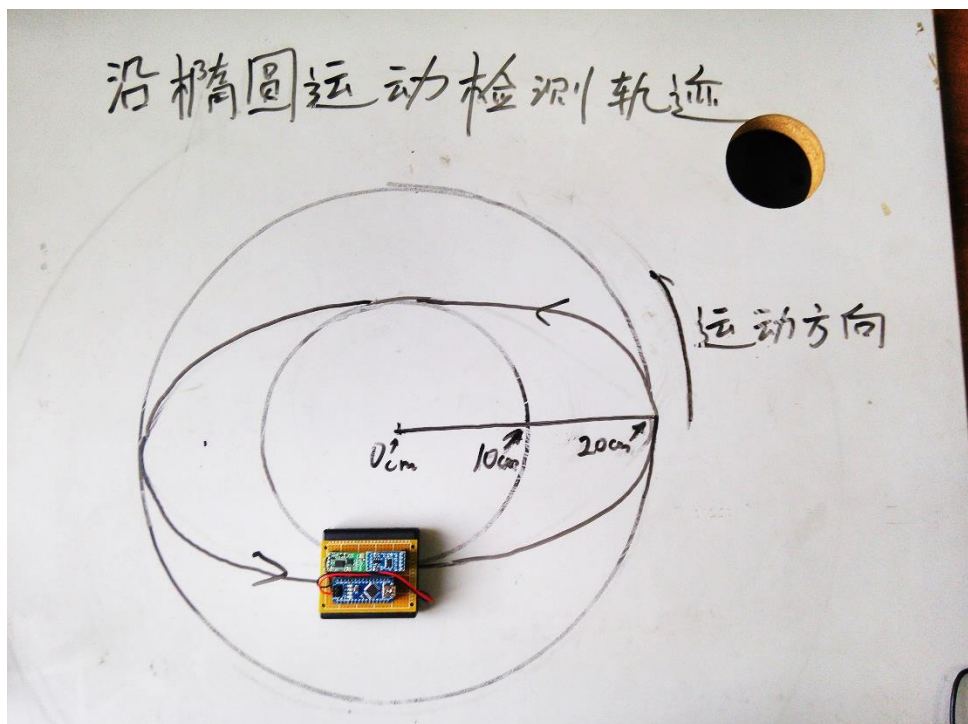 沿椭圆运动检测轨迹
运动方向
0cm
10cm
20cm